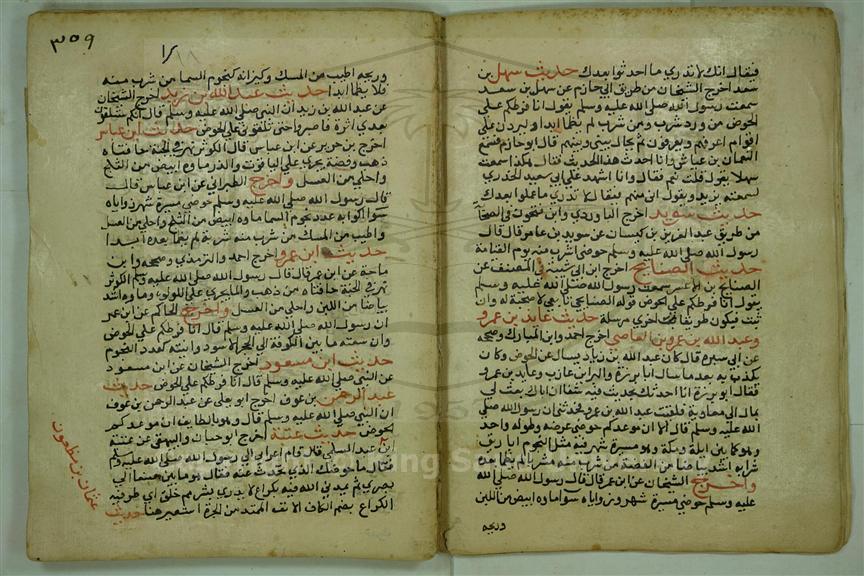 فيقال انك لا تدري ما احدثوا بعدك حديث سهل بن
سعد اخرج الشيخان من طريق ابي حازم عن سهل بن سعد
سمعت رسول الله صلى الله عليه وسلم يقول انا فرطكم على
الحوض من ورد شرب ومن شرب لم يظما ابدا وليردن علي
اقوام اعرفهم ويعرفوني ثم يحال بيني وبينهم قال ابو حازم فسمع
النعمان بن عياش وانا احدث هذا الحديث فقال هكذا سمعت
سهلا يقول قلت نعم فقال وانا اشهد على ابي سعيد الخدري
لسمعته يزيد ويقول انهم مني فيقال لا تدري ما عملوا بعدك
حديث سويد اخرج الباوردي وابن
من طريق عبد العزيز بن كيسان عن سويد بن عامر قال قال
رسول الله صلى الله عليه وسلم حوضي اشرب منه يوم القيامة
حديث الصنابح اخرج ابن ابي شيبة في المصنف عن
الصنابح بن الاعسر سمعت رسول الله صلى الله عليه وسلم
يقول انا فرطكم على الحوض قوله الصنابحي تابعي لا صحبة له وان
ثبت فيكون طريقا اخرى مرسلة حديث عايذ بن عمرو
وعبد الله بن عمرو بن العاصي اخرج احمد وابن المبارك وصححه
عن ابي سبرة قال كان عبد الله بن زياد يسال عن الحوض وكان
يكذب به بعد ما سال ابا برزة والبرا بن عازب وعايد بن عمرو
فقال ابو برزة انا احدثك بحديث فيه شفا ان اباك بعث لي
بمال الى معاوية فلقيت عبد الله بن عمرو فحدثني ان رسول الله صلى
الله عليه وسلم قال الا ان موعدكم حوضي عرضه وطوله واحد
وهو كما بين ايلة ومكة وهو مسيرة شهر فيه مثل النجوم اباريق
شرابه اشد بياضا من الفضة من شرب منه مشربا لم يظما بعده
واخرج الشيخان عن ابن عمر قال قال رسول الله صلى الله
عليه وسلم حوضي مسيرة شهر وزواياه سوا ماوه ابيض من اللبن
وريحه
٣٥٩
وريحه اطيب من المسك وكيزانه كنجوم السما من شرب منه
فلا يظما ابدا حديث عبد الله بن زيد اخرج الشيخان
عن عبد الله بن زيد ان النبي صلى الله عليه وسلم قال انكم ستلقون
بعدي اثرة فاصبروا حتى تلقوني على الحوض حديث ابن عباس
اخرج بن جرير عن ابن عباس قال الكوثر نهر في الجنة حافتاه
ذهب وفضة يجري على الياقوت والدر ماوه ابيض من الثلج
واحلى من العسل واخرج الطبراني عن ابن عباس قال
قال رسول الله صلى الله عليه وسلم حوضي مسيرة شهر زواياه
سوا اكوابه عدد نجوم السما ماوه ابيض من الثلج واحلى من العسل
واطيب من المسك من شرب منه شربة لم يظما بعده ابدا
حديث ابن عمر واخرج احمد والترمذي وصححه وابن
ماجة عن ابن عمر قال قال رسول الله صلى الله عليه وسلم الكوثر
نهر في الجنة حافتاه من ذهب والما يجري على اللولو وماوه اشد
بياضا من اللبن واحلى من العسل واخرج الحاكم عن ابن عمر
ان رسول الله صلى الله عليه وسلم قال انا فرطكم على الحوض
وان سعته ما بين الكوفة الى الحجر الاسود وانيته كعدد النجوم
حديث ابن مسعود اخرج الشيخان عن ابن مسعود
عن النبي صلى الله عليه وسلم قال انا فرطكم على الحوض حديث
عبد الرحمن بن عوف اخرج ابو يعلى عن عبد الرحمن بن عوف
ان النبي صلى الله عليه وسلم قال وهو بالطايف ان موعدكم
الحوض حديث عتبة اخرج ابو حيان والبيهقي عن عتبة
ابن عبد السلمي قال قام اعرابي الى رسول الله صلى الله عليه وسلم
فقال ما حوضك الذي تحدث عنه فقال هو ما بين صنعا الى
بصرى ثم يمدني الله فيه بكراع لا يدري بشر مم خلق اي طرفيه
الكراع بضم الكاف الانف الممتد من الحرة استعير هنا حديث
عثمان بن مظعون